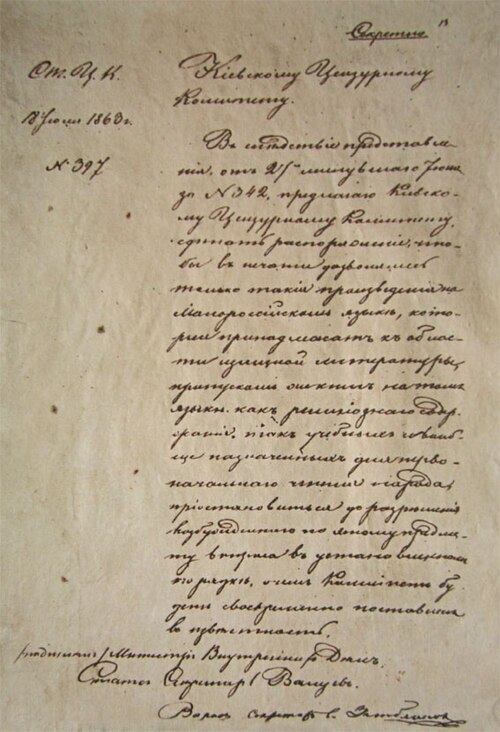 Секретно
От. Ц. К.
18 Іюля 1863 г.
N 397
Кіевскому Цензурному
Комитету.
Въ слѣдствіе представле-
нія, отъ 27го минувшаго Іюня
за N 342, предлагаю Кіевско-
му Цензурному Комитету,
сдѣлать распоряженіе, что-
бы къ печати дозволялись
только такія произведенія на
Малороссійскомъ языкѣ, кото-
рыя принадлежатъ къ облас-
ти изящной литературы,
пропускомъ же книгъ на томъ
языкѣ какъ религіознаго содер-
жанія, такъ учебныхъ и вооб-
ще назначенныхъ для перво-
начальнаго чтенія народа,
пріостановиться до разрѣшенія
возбужденнаго по этому предме-
ту вопроса въ установленномъ
порядкѣ, о чемъ Комитетъ бу-
детъ своевременно поставленъ
въ извѣстность.
/подписали/ Министръ Внутреннихъ Дѣлъ,
Статсъ Секретарь Валуевъ.